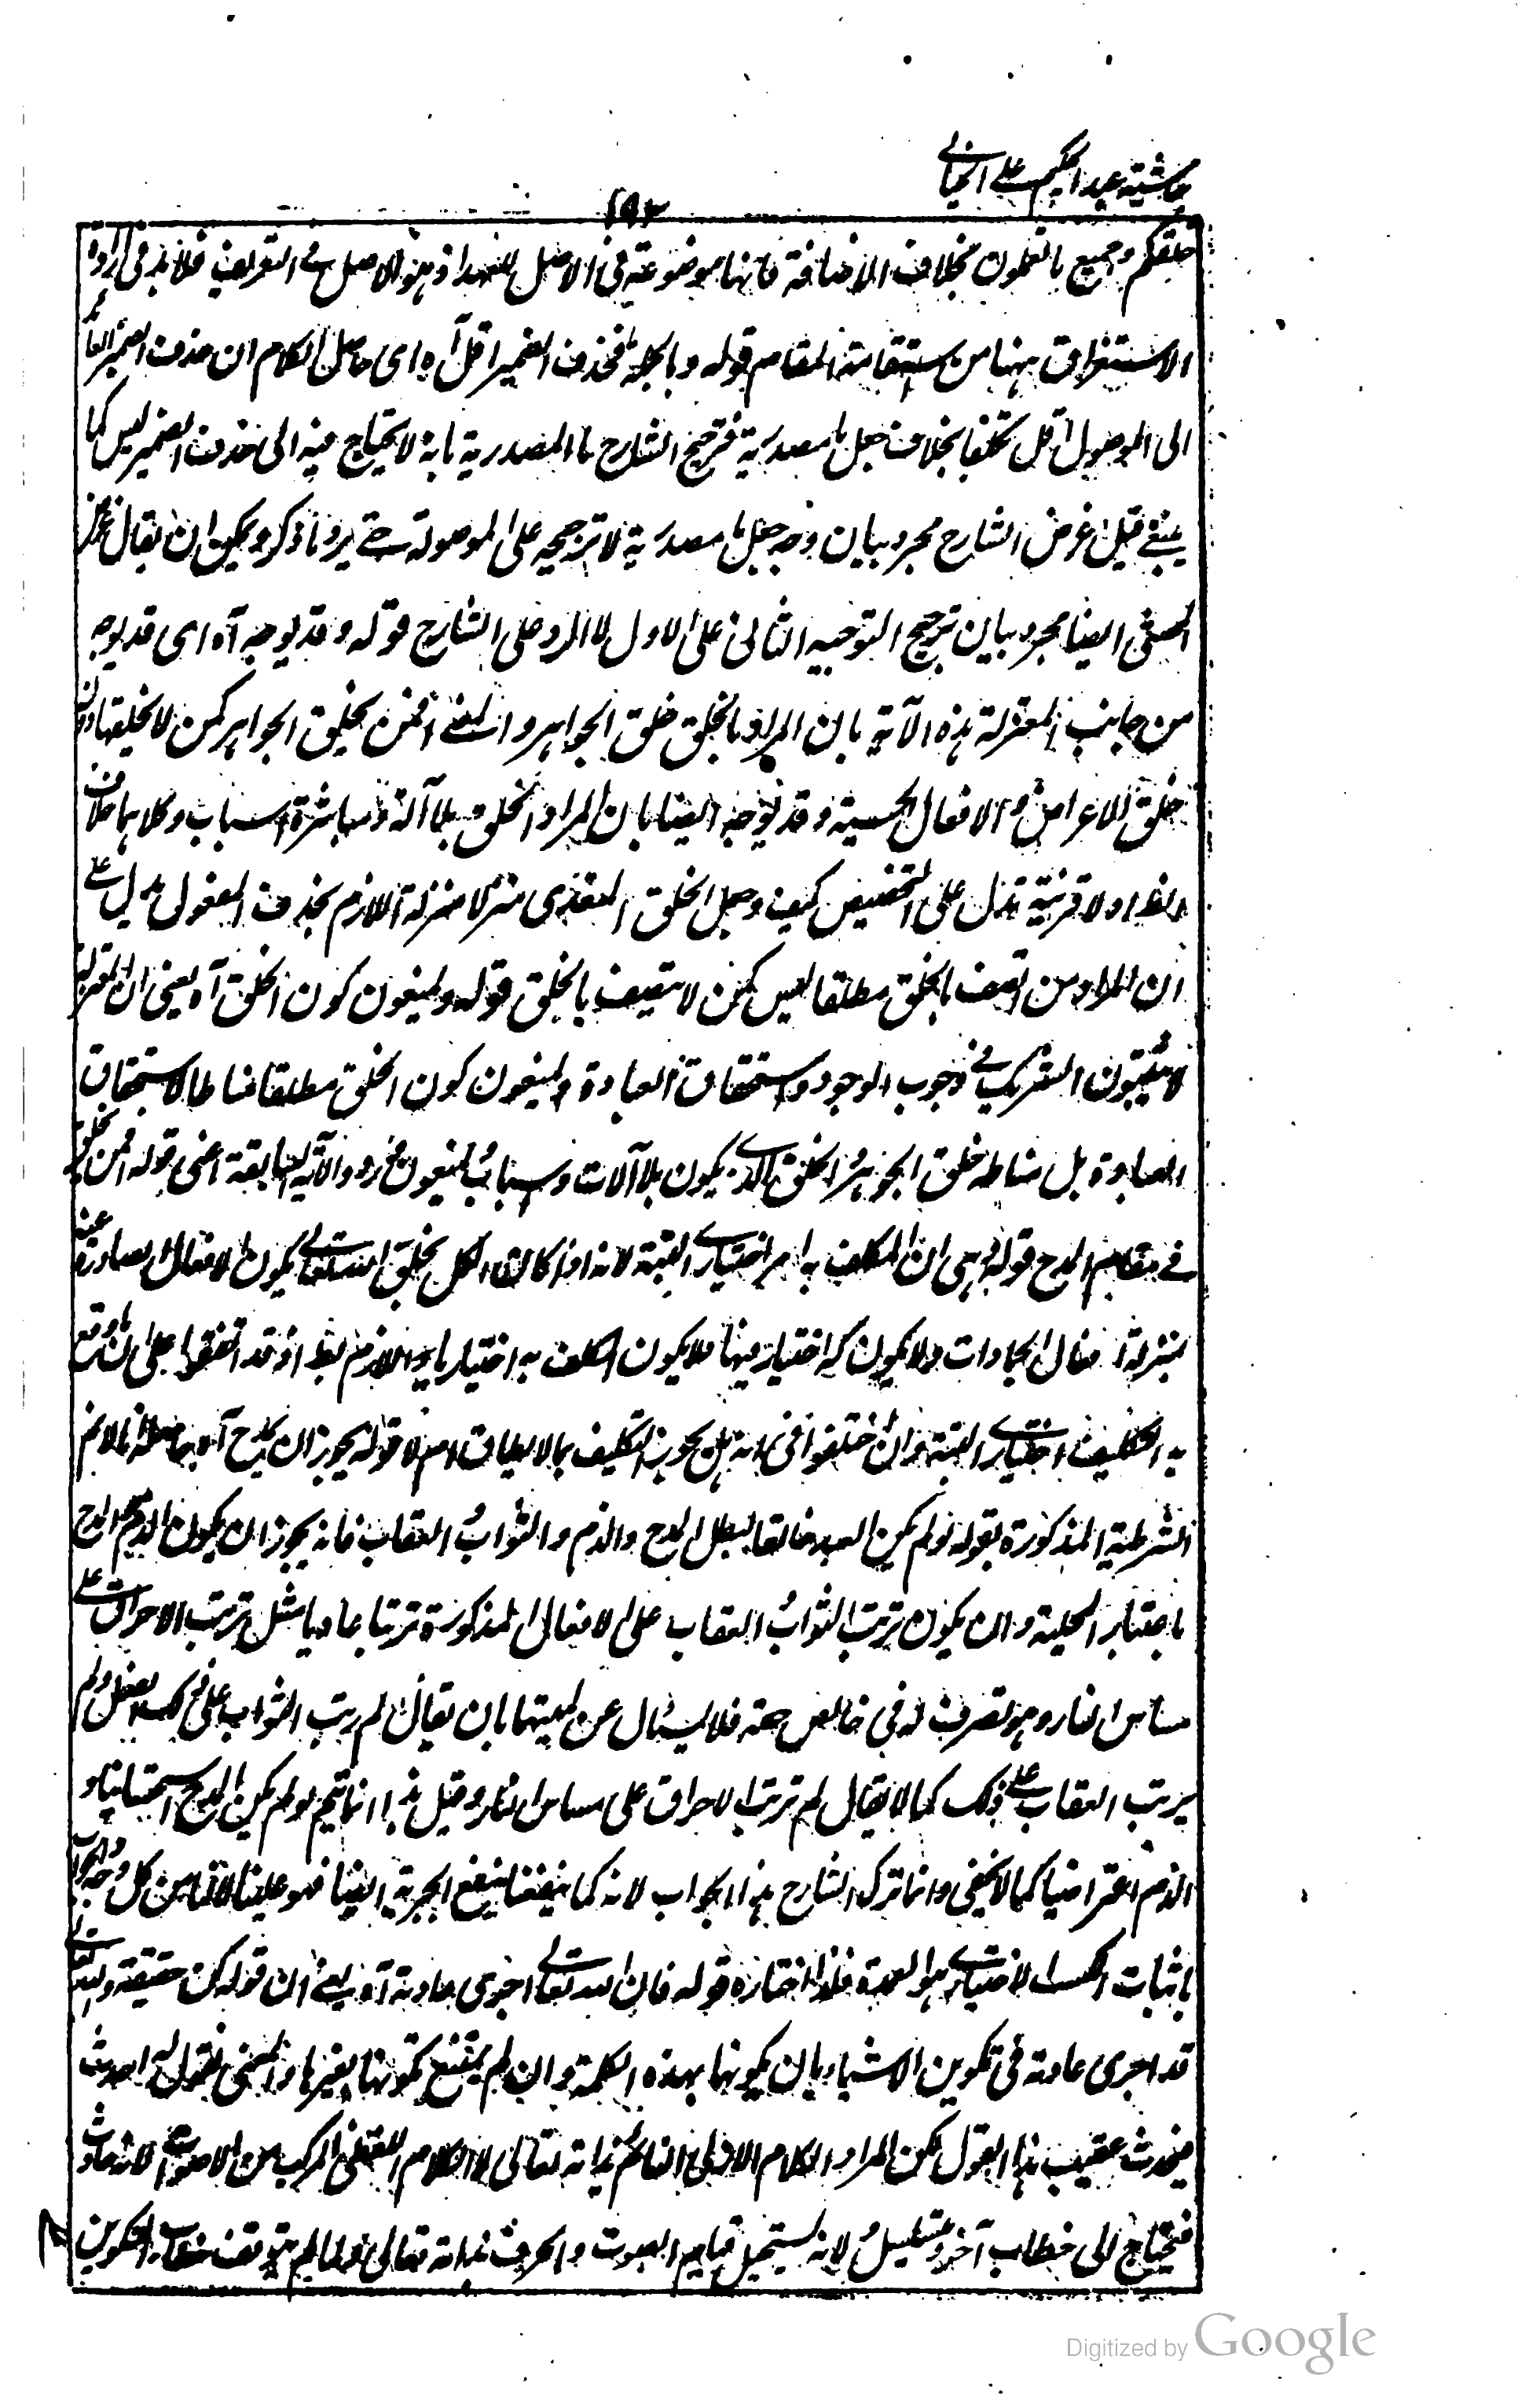 حاشية عبد الحكيم على الخيالي
١٩٢
خلقكم وجميع ما تعملون بخلاف الاضافة فانها موضوعة في الاصل للعهد اذ هو الاصل في التعريف فلا بد في ارادة
الاستغراق ههنا من استقامة المقام قوله وبالجملة فحذف الضمير اقل آه اى حاصل الكلام ان حذف الضمير العائد
الى الموصول اقل تكلفا بخلاف جعل ما مصدرية فترجيح الشارح ما المصدرية بانه لا يحتاج فيه الى حذف الضمير ليس كما
ينبغي قيل غرض الشارح مجرد بيان وجه جعل ما مصدرية لا ترجيحه على الموصولة حتى يرد ما ذكر ويمكن ان يقال غرض
المحشى ايضا مجرد بيان ترجيح التوجيه الثانى على الاول لا الرد على الشارح قوله وقد يوجه آه اى قد يوجه
من جانب المعتزلة هذه الآية بان المراد بالخلق خلق الجواهر والمعنى افمن يخلق الجواهر كمن لا يخلقها دون
خلق الاعراض والافعال الحسية وقد يوجه ايضا بان المراد الخلق بلا آلة ومباشرة اسباب وكلاهما خلاف
الظاهر ولا قرينة تدل على التخصيص كيف وجعل الخلق المتعدى منزلا منزلة اللازم بحذف المفعول يدل على
ان المراد من اتصف بالخلق مطلقا ليس كمن لا يتصف بالخلق قوله ويمنعون كون الخلق آه يعنى ان المعتزلة
لا يثبتون الشريك في وجوب الوجود واستحقاق العبادة ويمنعون كون الخلق مطلقا مناطا لاستحقاق
العبادة بل مناطه خلق الجوهر والخلق الذى يكون بلا آلات واسباب ويمنعون ورود الآية السابقة اعنى قوله افمن يخلق
في مقام المدح قوله وهى ان المكلف به امر اختيارى البتة لانه اذا كان الكل بخلق الله تعالى يكون الافعال الصادرة عنه
بمنزلة افعال الجمادات ولا يكون له اختيار فيها فلا يكون المكلف به اختياريا واللازم بط اذ قد اتفقوا على ان ما وقع
به التكليف اختيارى البتة وان اختلفوا في انه هل يجوز التكليف بما لا يطاق ام لا قوله يجوز ان يمدح آه حاصله انا لا نم
الشرطية المذكورة بقوله لو لم يكن العبد خالقا لبطل المدح والذم والثواب والعقاب فانه يجوز ان يكون الذم والمدح
باعتبار المحلية وان يكون ترتب الثواب والعقاب على الافعال المذكورة ترتبا عاديا مثل ترتب الاحراق على
مساس النار وهو تصرف له في خالص حقه فلا يسئال عن لميتها بان يقال لم رتب الثواب على ذلك الفعل ولم
يرتب العقاب على ذلك كما لا يقال لم ترتب الاحراق على مساس النار وقيل هذا انما يتم لو لم يكن المدح استحسانيا و
الذم اعتراضيا كما لا يخفى وانما ترك الشارح هذا الجواب لانه كما ينفعنا ينفع الجبرية ايضا فهو علينا لا لنا من كل وجه والجواب
باثبات الكسب الاختيارى هو العمدة فلذا اختاره قوله فان الله تعالى اجرى عادته آه يعنى ان قوله كن حقيقة والله تعالى
قد اجرى عادته في تكوين الاشياء بان يكونها بهذه الكلمة وان لم يمتنع تكونها بغيرها والمعنى يقول له احدث
فيحدث عقيب هذا القول لكن المراد الكلام الازلى القائم بذاته تعالى لا الكلام اللفظى المركب من الاصوات لانه حادث
فيحتاج الى خطاب آخر ويتسلسل ولانه يستحيل قيام الصوت والحرف بذاته تعالى ولما لم يتوقف خطاب التكوين